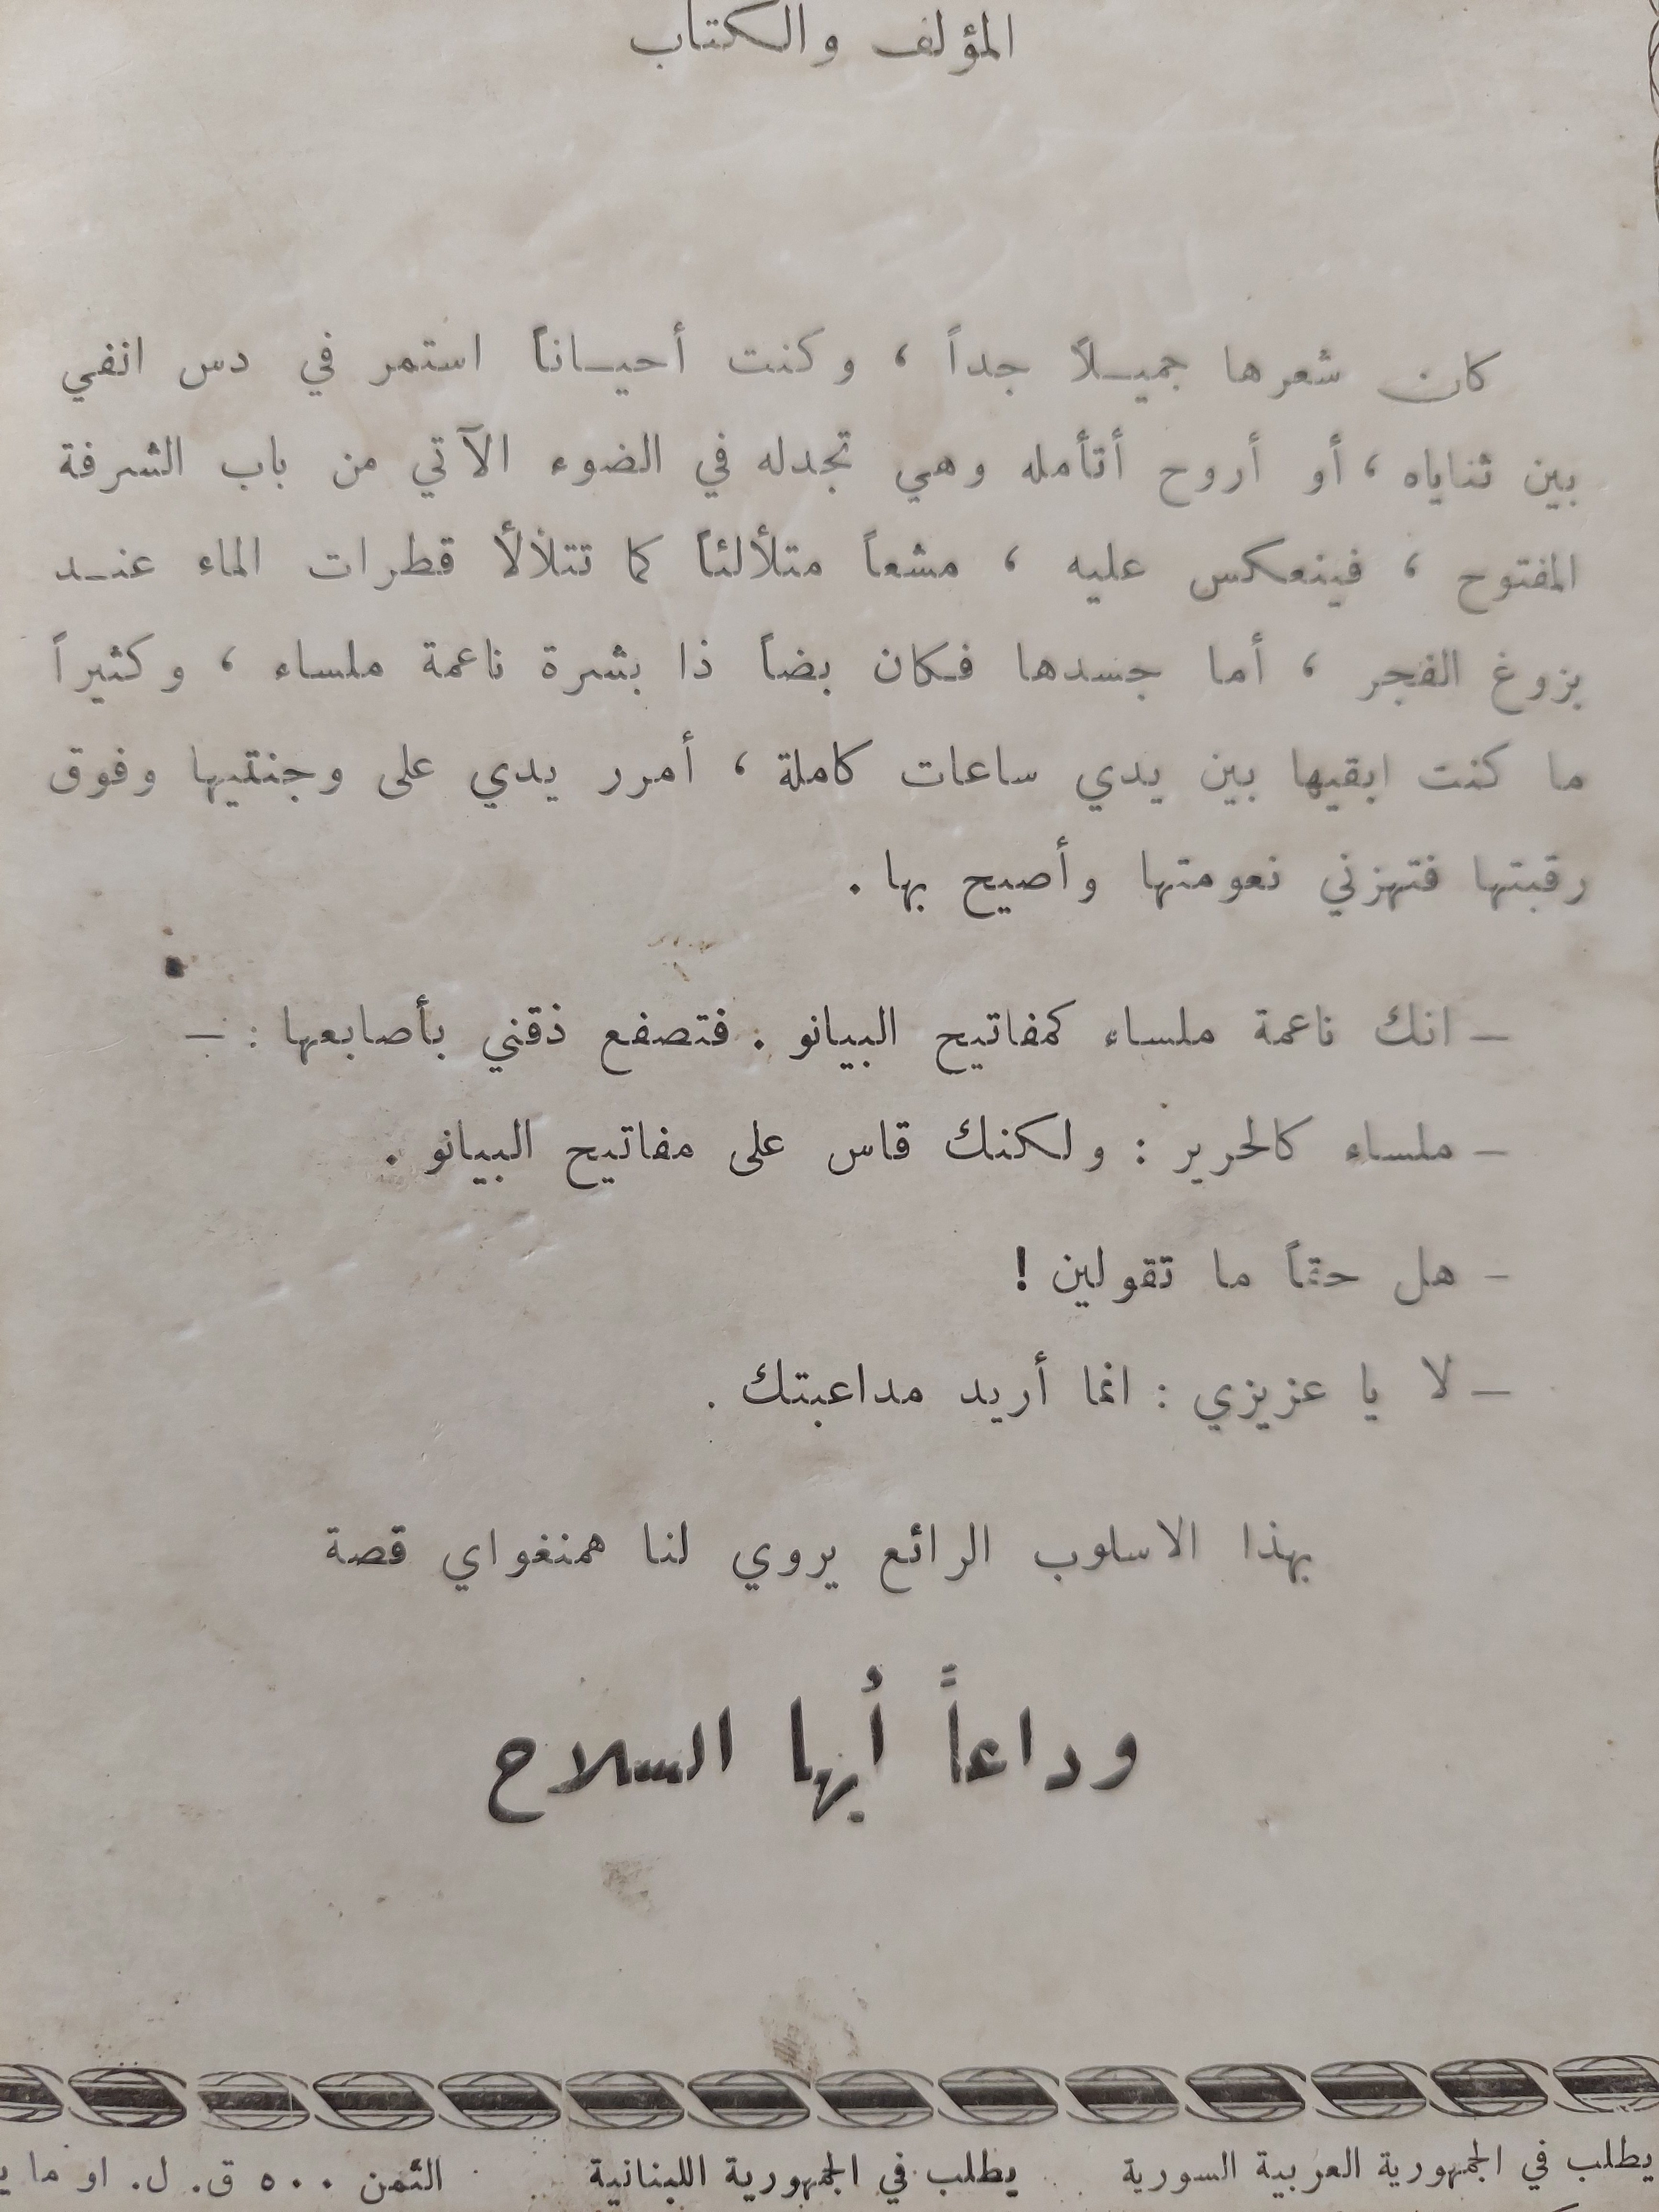 المؤلف والكتاب
كان شعرها جميلاً جداً ، وكنت أحياناً استمر في دس انفي
بين ثناياه ، أو أروح أتأمله وهي تجدله في الضوء الآتي من باب الشرفة
المفتوح ، فينعكس عليه ، مشعاً متلألئاً كما تتلألأ قطرات الماء عند
بزوغ الفجر ، أما جسدها فكان بضاً ذا بشرة ناعمة ملساء ، وكثيراً
ما كنت ابقيها بين يدي ساعات كاملة ، أمرر يدي على وجنتيها وفوق
رقبتها فتهزني نعومتها وأصيح بها .
– انك ناعمة ملساء كمفاتيح البيانو . فتصفع ذقني بأصابعها : –
– ملساء كالحرير : ولكنك قاس على مفاتيح البيانو .
– هل حقاً ما تقولين !
– لا يا عزيزي : انما أريد مداعبتك .
بهذا الاسلوب الرائع يروي لنا همنغواي قصة
وداعاً أيها السلاح
يطلب في الجمهورية العربية السورية يطلب في الجمهورية اللبنانية الثمن ٥٠٠ ق. ل. او ما